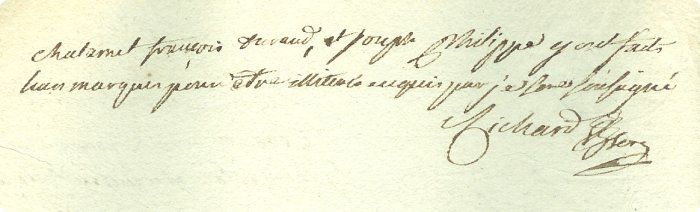 chalamet françois durand, et joseph Philippe y ont faits
leurs marques pour etre illiteré enquis par je Nore sousigné
Richard